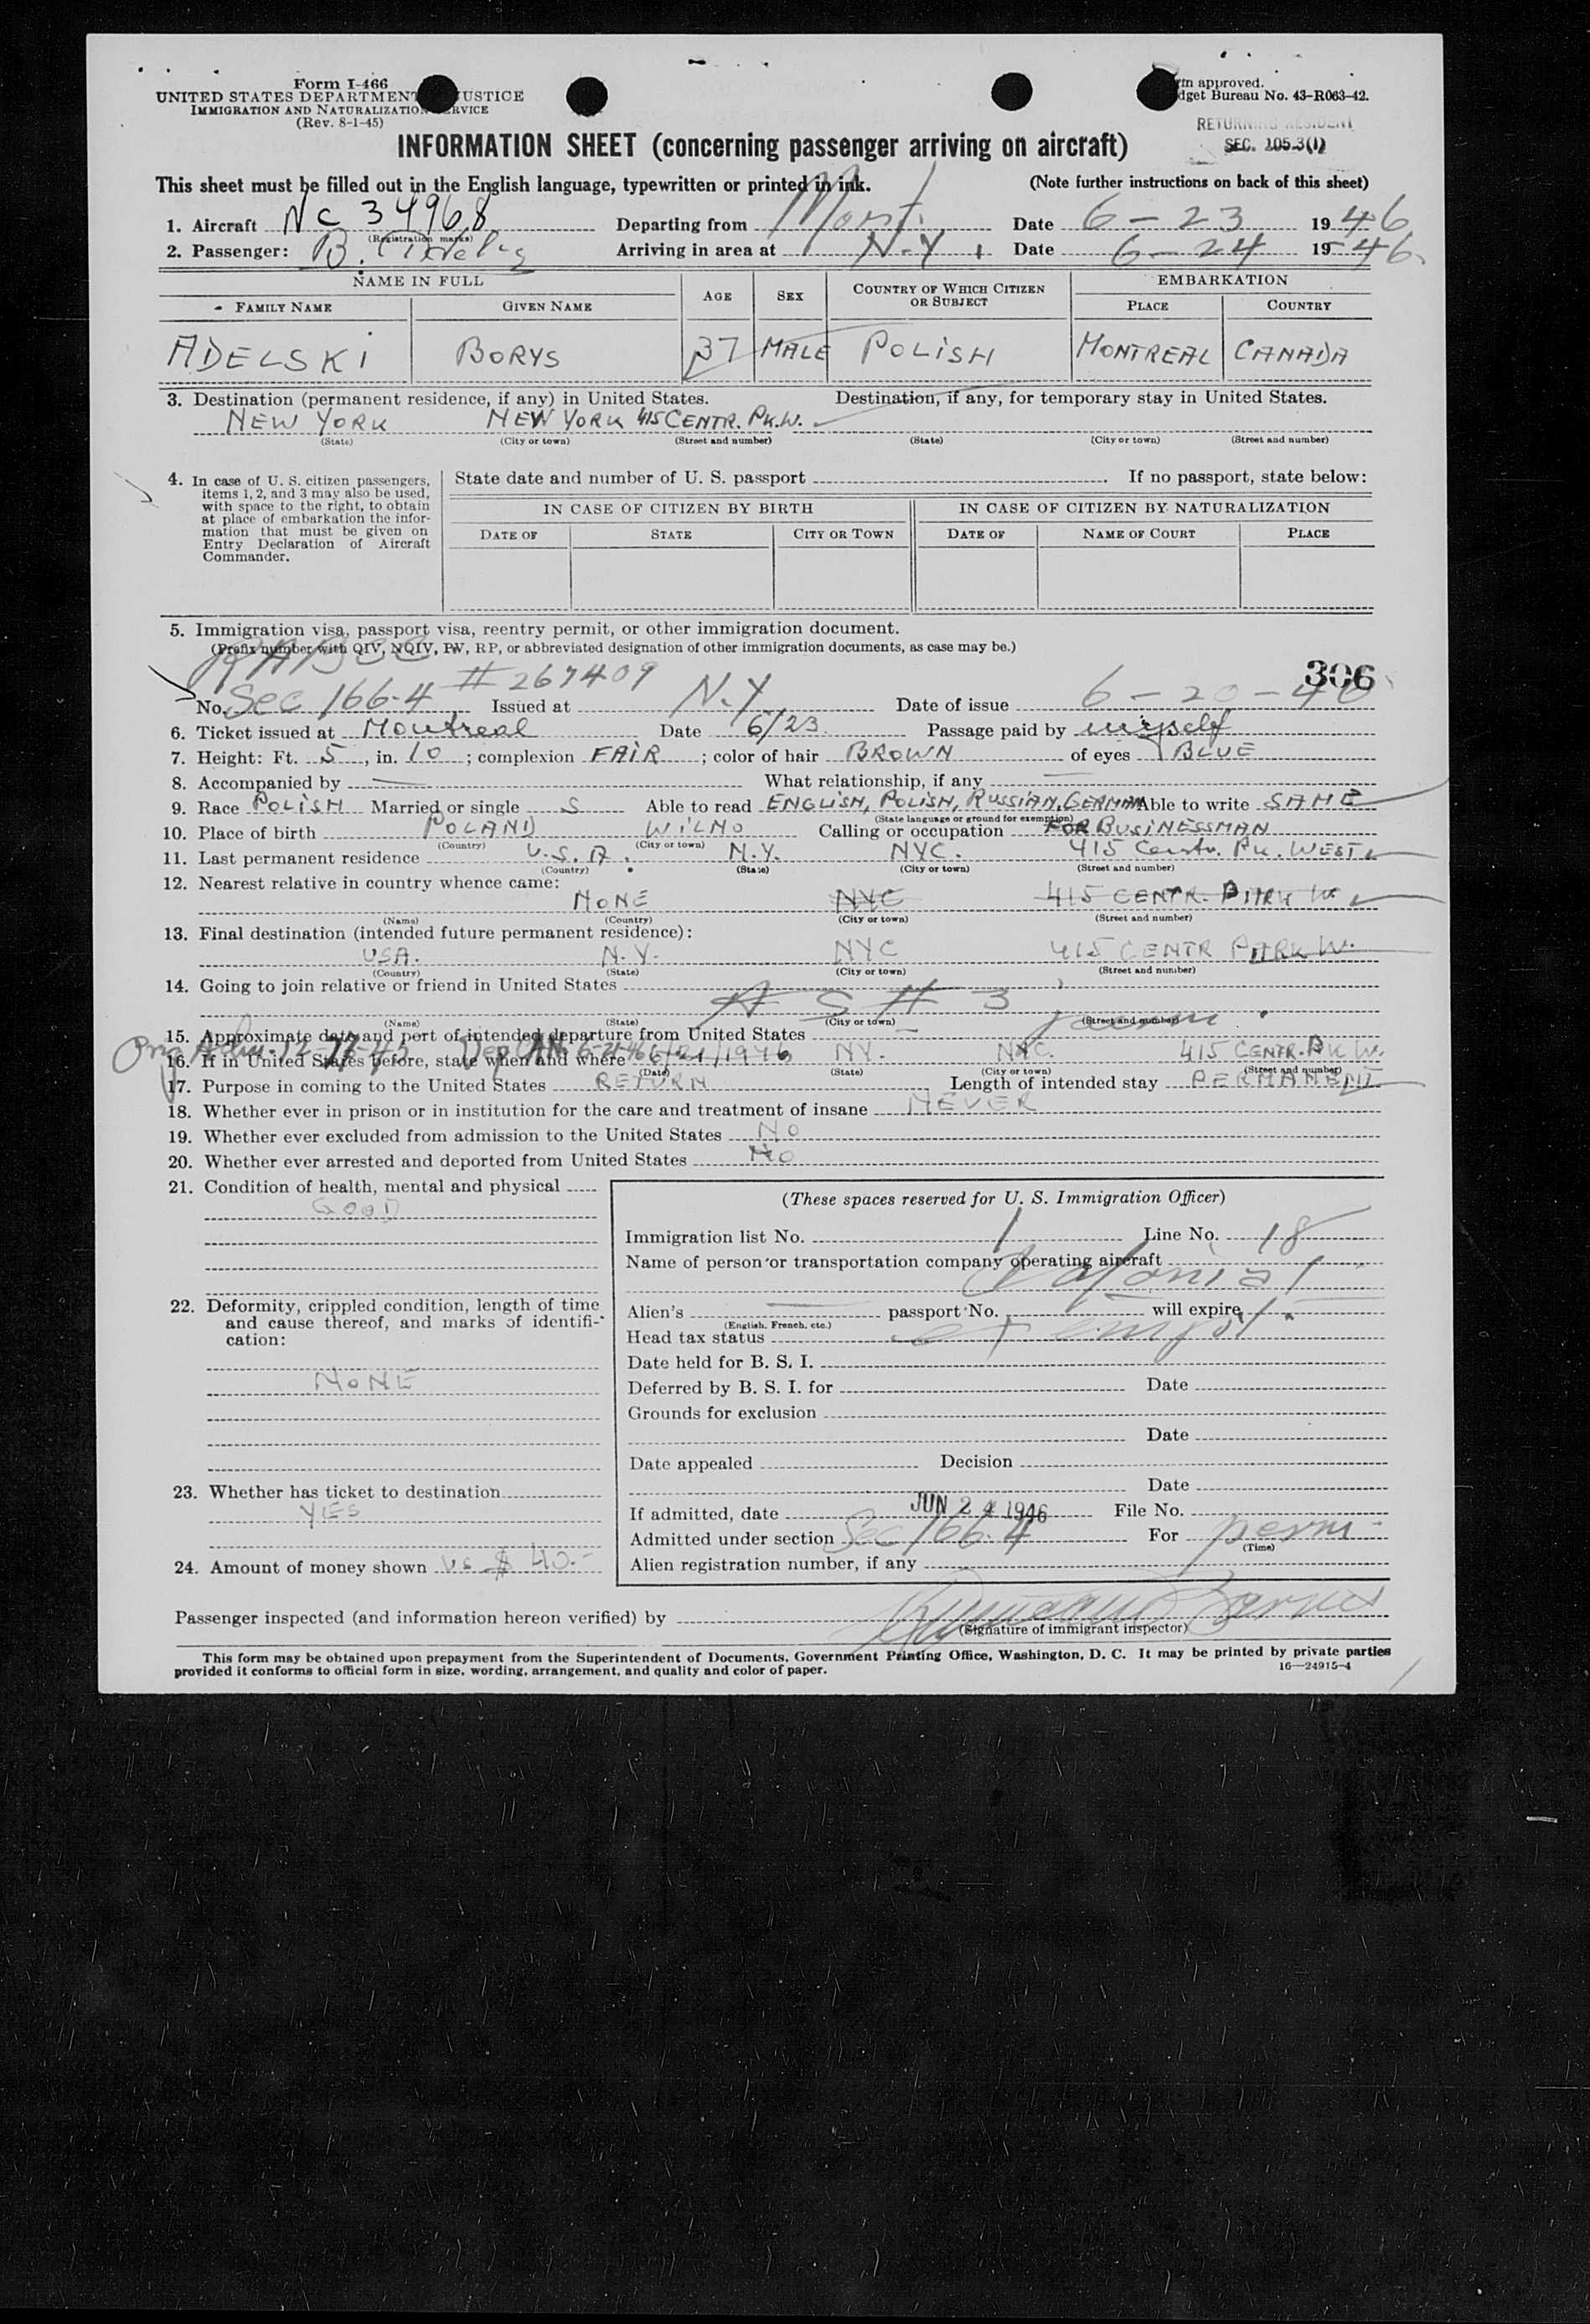 Form I-466
UNITED STATES DEPARTMENT JUSTICE
IMMIGRATION AND NATURALIZATION SERVICE
(Rev. 8-1-45)
approved.
dget Bureau No. 43-R063-42.
RETURNING RESIDENT
SEC. 105.3(1)
INFORMATION SHEET (concerning passenger arriving on aircraft)
This sheet must be filled out in the English language, typewritten or printed in ink. (Note further instructions on back of this sheet)
1. Aircraft NC 34968 Departing from Mont. Date 6-23 1946
(Registration marks)
2. Passenger: B. Arriving in area at N.Y. Date 6-24 1946.
NAME IN FULL AGE SEX COUNTRY OF WHICH CITIZEN OR SUBJECT EMBARKATION
FAMILY NAME GIVEN NAME PLACE COUNTRY
ADELSKI BORYS 37 MALE POLISH MONTREAL CANADA
3. Destination (permanent residence, if any) in United States. Destination, if any, for temporary stay in United States.
NEW YORK NEW YORK 415 CENTR. PK.W.
(State) (City or town) (Street and number) (State) (City or town) (Street and number)
4. In case of U. S. citizen passengers, items 1, 2, and 3 may also be used, with space to the right, to obtain at place of embarkation the information that must be given on Entry Declaration of Aircraft Commander.
State date and number of U. S. passport If no passport, state below:
IN CASE OF CITIZEN BY BIRTH IN CASE OF CITIZEN BY NATURALIZATION
DATE OF STATE CITY OR TOWN DATE OF NAME OF COURT PLACE
5. Immigration visa, passport visa, reentry permit, or other immigration document.
(Prefix number with QIV, NQIV, PV, RP, or abbreviated designation of other immigration documents, as case may be.)
306
# 267409
No. Sec 166.4 Issued at N.Y. Date of issue 6-20-46
6. Ticket issued at Montreal Date 6/23 Passage paid by myself
7. Height: Ft. 5, in. 10; complexion FAIR; color of hair BROWN of eyes BLUE
8. Accompanied by — What relationship, if any —
9. Race POLISH Married or single S Able to read ENGLISH, POLISH, RUSSIAN, GERMAN Able to write SAME
(State language or ground for exemption)
10. Place of birth POLAND WILNO Calling or occupation FOR BUSINESSMAN
(Country) (City or town)
11. Last permanent residence U.S.A. N.Y. NYC. 415 Centr. Pk. WEST
(Country) (State) (City or town) (Street and number)
12. Nearest relative in country whence came:
NONE NYC 415 CENTR. PARK W.
(Name) (Country) (City or town) (Street and number)
13. Final destination (intended future permanent residence):
USA. N.Y. NYC 415 CENTR PARK W.
(Country) (State) (City or town) (Street and number)
14. Going to join relative or friend in United States
A S H 3
(Name) (State) (City or town) (Street and number)
15. Approximate date and port of intended departure from United States
16. If in United States before, state when and where 6/21/1946 NY. NYC. 415 CENTR. PK W.
(Date) (State) (City or town) (Street and number)
17. Purpose in coming to the United States RETURN Length of intended stay PERMANENT
18. Whether ever in prison or in institution for the care and treatment of insane NEVER
19. Whether ever excluded from admission to the United States NO
20. Whether ever arrested and deported from United States NO
21. Condition of health, mental and physical
GOOD
22. Deformity, crippled condition, length of time and cause thereof, and marks of identification:
NONE
23. Whether has ticket to destination
YES
24. Amount of money shown US $ 40.-
(These spaces reserved for U. S. Immigration Officer)
Immigration list No. 1 Line No. 18
Name of person or transportation company operating aircraft
Colonial
Alien's — passport No. will expire
(English, French, etc.)
Head tax status exempt.
Date held for B. S. I.
Deferred by B. S. I. for Date
Grounds for exclusion
Date
Date appealed Decision
Date
If admitted, date JUN 24 1946 File No.
Admitted under section Sec 166.4 For perm.
(Time)
Alien registration number, if any
Passenger inspected (and information hereon verified) by
(Signature of immigrant inspector)
This form may be obtained upon prepayment from the Superintendent of Documents, Government Printing Office, Washington, D. C. It may be printed by private parties
provided it conforms to official form in size, wording, arrangement, and quality and color of paper. 16—24915-4